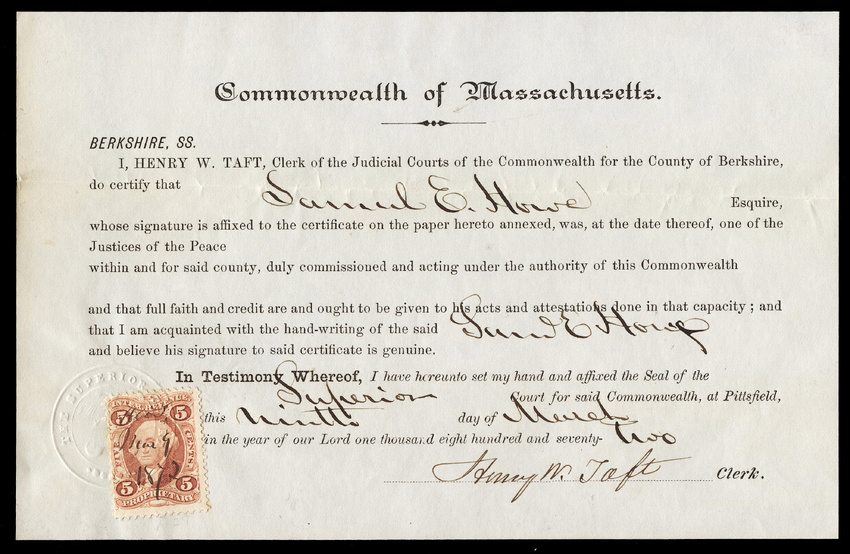 Commonwealth of Massachusetts.
BERKSHIRE, SS.
I, HENRY W. TAFT, Clerk of the Judicial Courts of the Commonwealth for the County of Berkshire,
do certify that Samuel E. Howe Esquire,
whose signature is affixed to the certificate on the paper hereto annexed, was, at the date thereof, one of the
Justices of the Peace
within and for said county, duly commissioned and acting under the authority of this Commonwealth
and that full faith and credit are and ought to be given to his acts and attestations done in that capacity; and
that I am acquainted with the hand-writing of the said Saml E Howe
and believe his signature to said certificate is genuine.
In Testimony Whereof, I have hereunto set my hand and affixed the Seal of the
Superior Court for said Commonwealth, at Pittsfield,
this Ninth day of March
in the year of our Lord one thousand eight hundred and seventy-two
Henry W. Taft Clerk.
THE SUPERIOR
5 5
FIVE CENTS
Mar 9
1872
5 5
PROPRIETARY